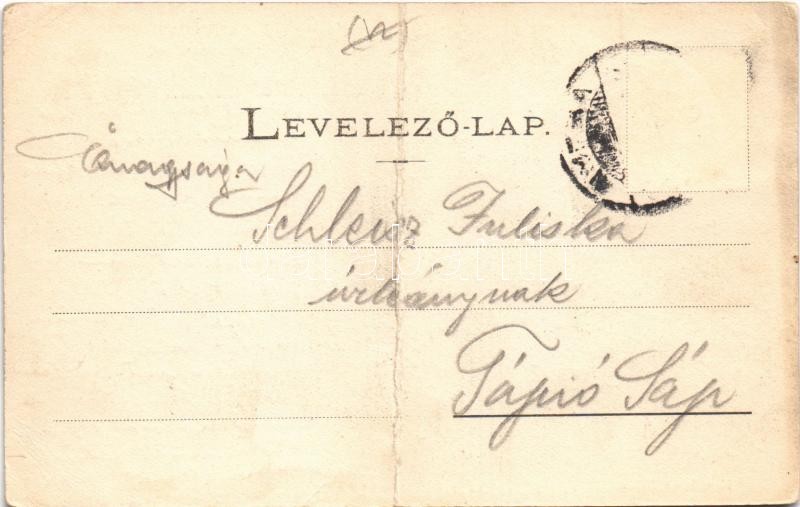 LEVELEZŐ-LAP.
Őnagysága
Schleisz Juliska
úrleánynak
Tápió Sáp